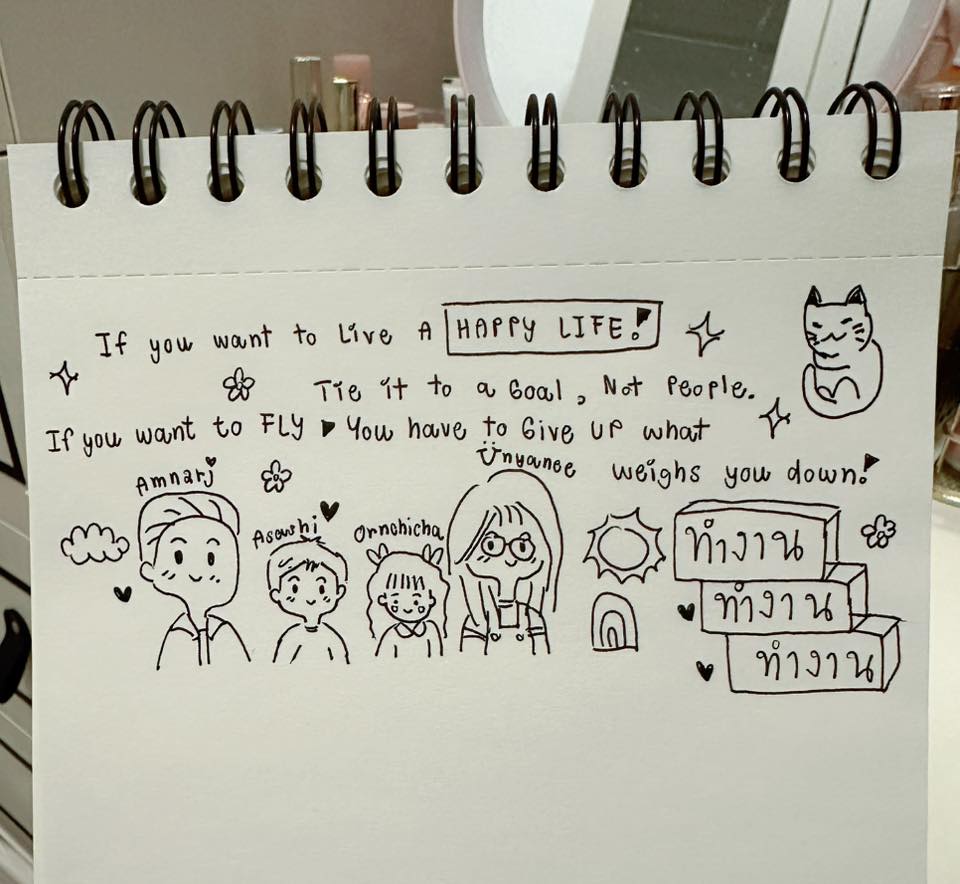 If you want to Live A HAPPY LIFE!
Tie it to a Goal, Not People.
If you want to FLY You have to Give up what
weighs you down!
Amnarj
Asawhi
Ornchicha
Unyanee
ทำงาน
ทำงาน
ทำงาน